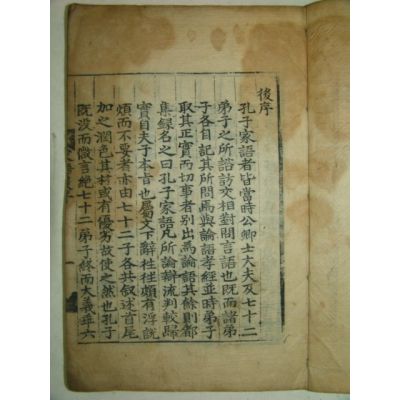 後序
孔子家語者皆當時公卿士大夫及七十二
弟子之所諮訪交相對問言語也既而諸弟
子各自記其所問焉與論語孝經並時弟子
取其正實而切事者别出爲論語其餘則都
集録名之曰孔子家語凡所論辯流判較歸
實自夫子本旨也屬文下辭往往頗有浮說
煩而不要者亦由七十二子各共叙述首尾
加之潤色其材或有優劣故使之然也孔子
既没而微言絶七十二弟子終而大義乖六